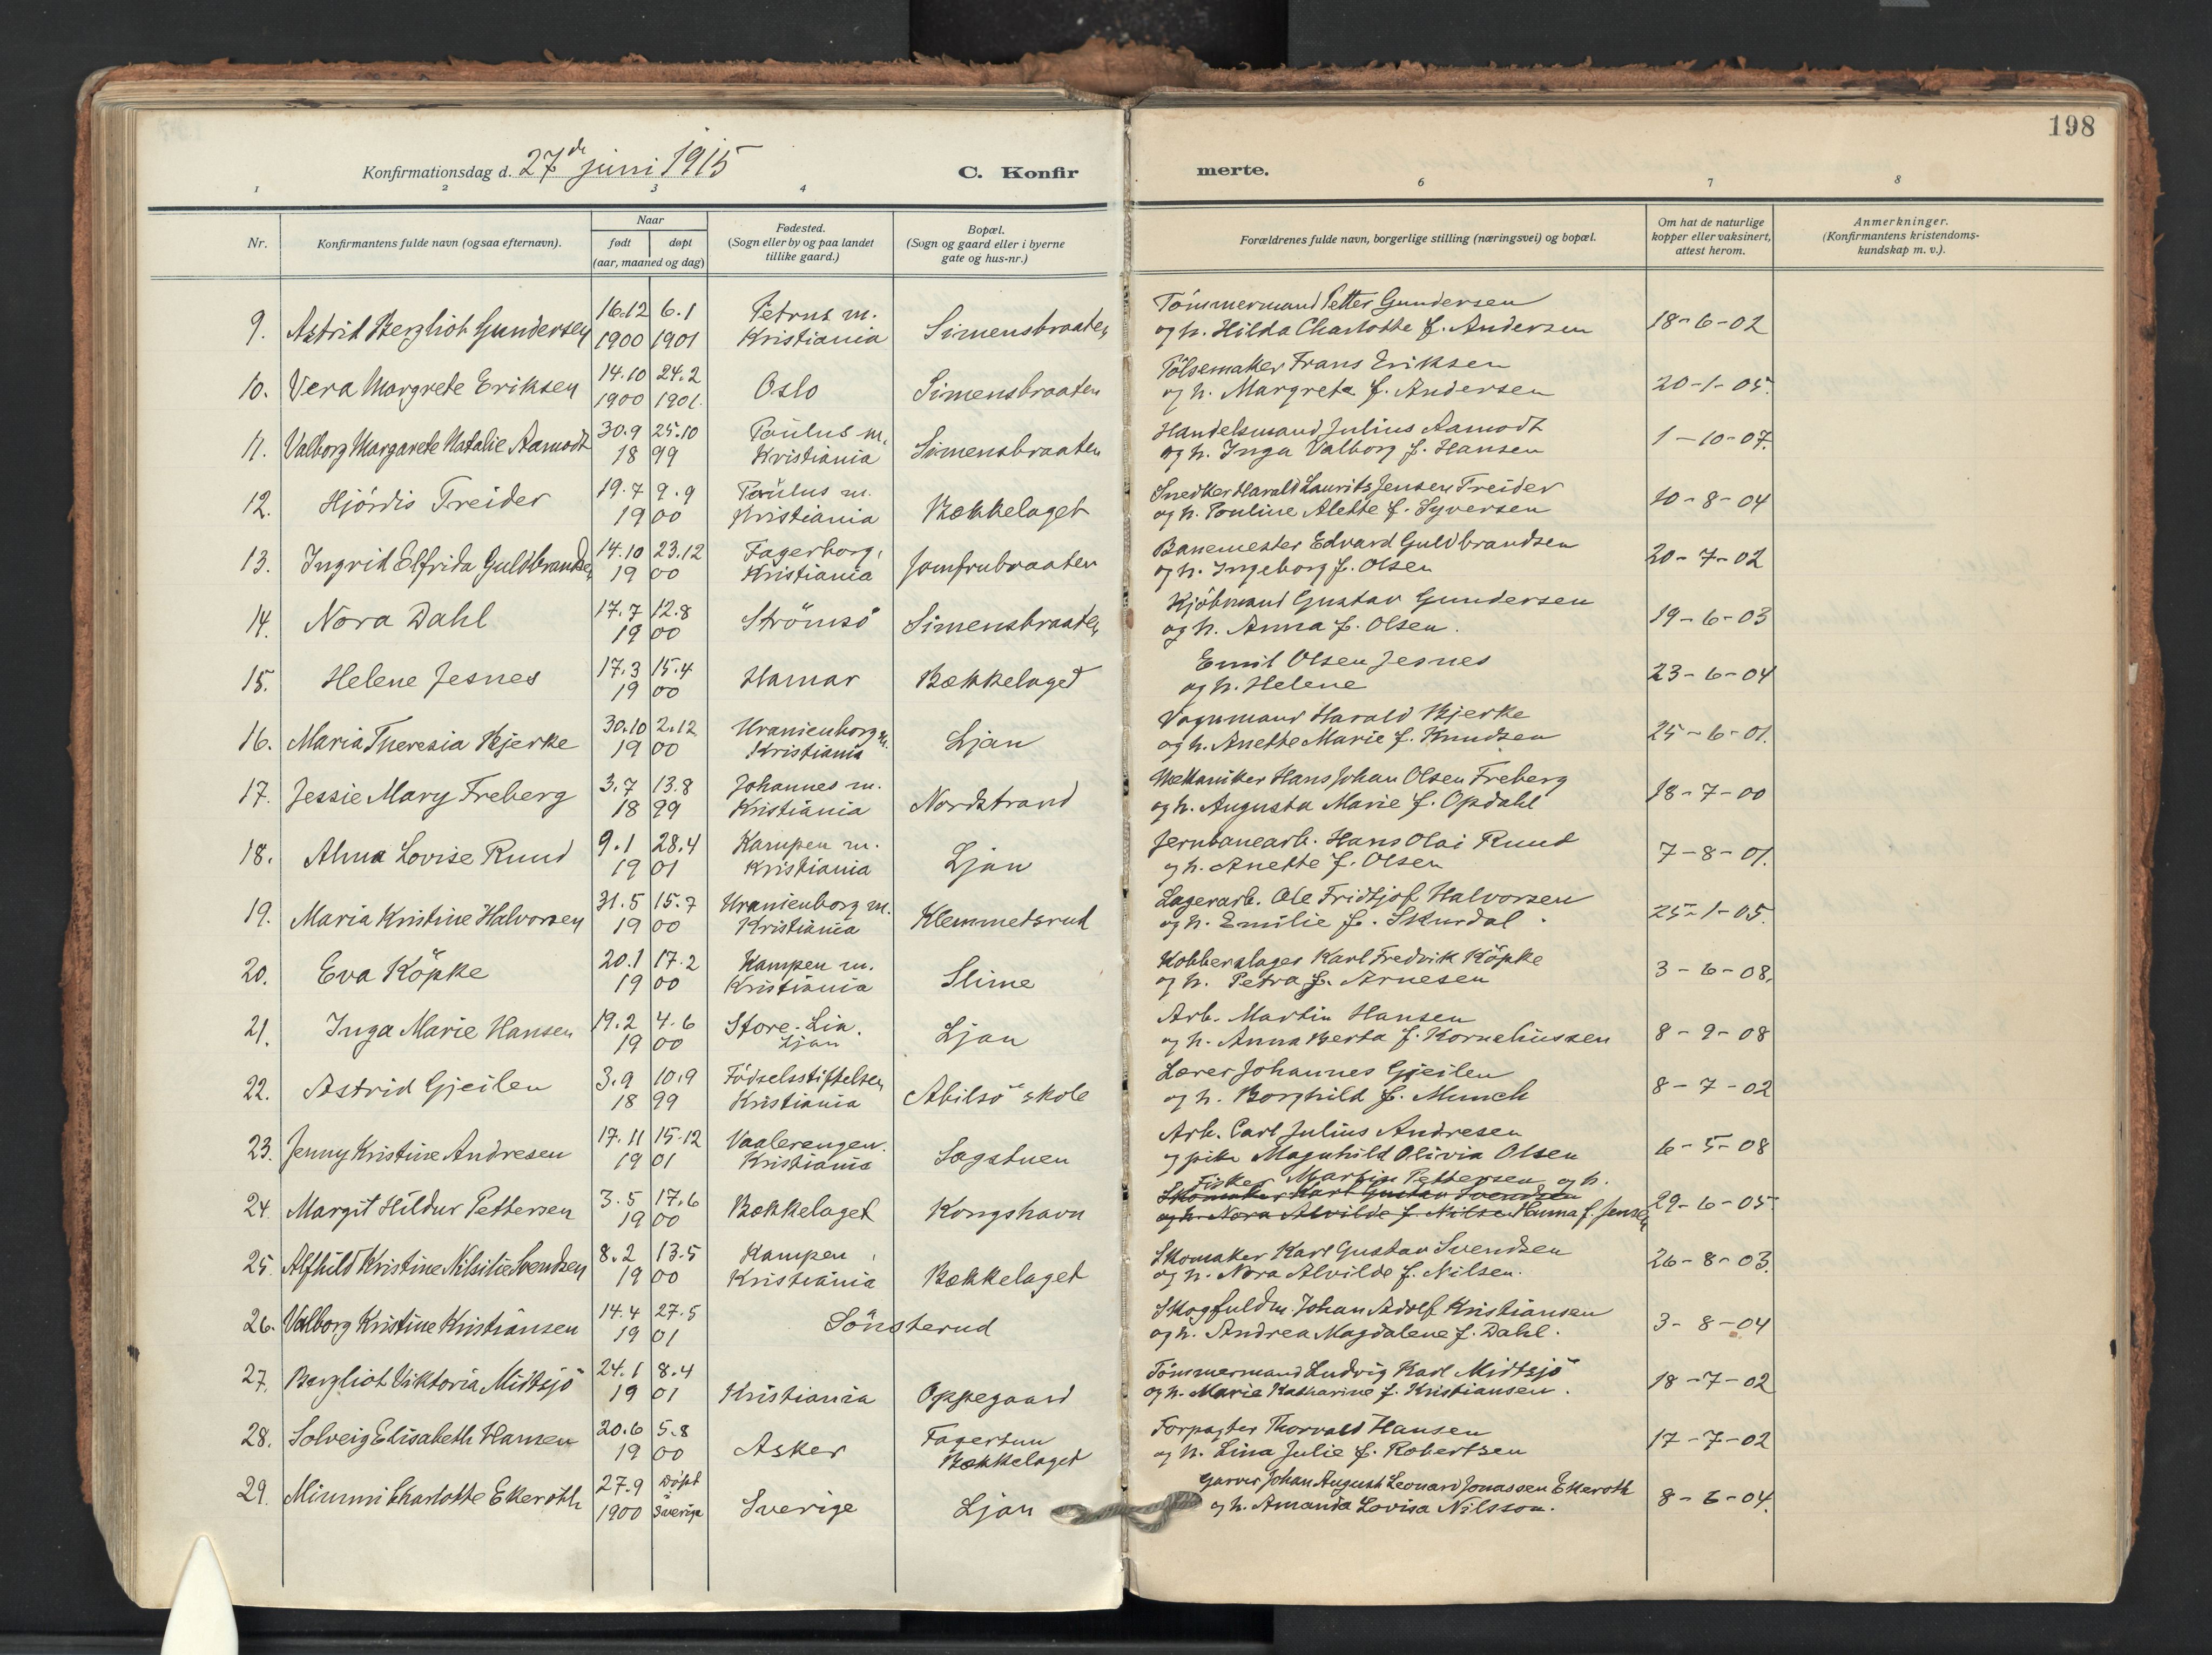 198
Konfirmationsdag d. 27de juni 1915
C. Konfirmerte.
1 2 3 4 6 7 8
Nr.
Konfirmantens fulde navn (ogsaa efternavn).
Naar
født døpt
(aar, maaned og dag)
Fødested.
(Sogn eller by og paa landet
tillike gaard.)
Bopæl.
(Sogn og gaard eller i byerne
gate og hus-nr.)
Forældrenes fulde navn, borgerlige stilling (næringsvei) og bopæl.
Om hat de naturlige
kopper eller vaksinert,
attest herom.
Anmerkninger.
(Konfirmantens kristendoms-
kundskap m. v.).
9. Astrid Bergliot Gundersen 16.12 1900 6.1 1901 Petrus m. Kristiania Simensbraaten
Tömmermand Petter Gundersen
og h. Hilda Charlotte f. Andersen 18-6-02
10. Vera Margrete Eriksen 14.10 1900 24.2 1901. Oslo Simensbraaten
Pölsemaker Frans Eriksen
og h. Margrete f. Andersen 20-1-05.
11. Valborg Margarete Natalie Aamodt 30.9 25.10 1899 Paulus m. Kristiania Simensbraaten
Handelsmand Julius Aamodt
og h. Inga Valborg f. Hansen 1-10-07.
12. Hjördis Treider 19.7 9.9 1900 Paulus m. Kristiania Bækkelaget
Snedker Harald Laurits Jensen Treider
og h. Pouline Alette f. Syversen 10-8-04
13. Ingrid Elfrida Guldbrandsen 14.10 23.12 1900 Fagerborg, Kristiania Jomfrubraaten
Banemester Edvard Guldbrandsen
og h. Ingeborg f. Olsen 20-7-02
14. Nora Dahl 17.7 12.8 1900 Strömsö Simensbraaten
Kjöbmand Gustav Gundersen
og h. Anna f. Olsen. 19-6-03
15. Helene Jesnes 17.3 15.4 1900 Hamar Bækkelaged
Emil Olsen Jesnes
og h. Helene 23-6-04
16. Maria Theresia Bjerke 30.10 2.12 1900 Uranienborg m. Kristiania Ljan
Vognmand Harald Bjerke
og h. Anette Marie f. Knudsen 25-6-01.
17. Jessie Mary Freberg 3.7 13.8 1899 Johannes m. Kristiania Nordstrand
Mekaniker Hans Johan Olsen Freberg
og h. Augusta Marie f. Opdahl 18-7-00
18. Alma Lovise Ruud 9.1 28.4 1901 Kampen m. Kristiania Ljan
Jernbanearb. Hans Olai Ruud
og h. Anette f. Olsen 7-8-01.
19. Maria Kristine Halvorsen 31.5 15.7 1900 Uranienborg m. Kristiania Klemmetsrud
Lagerarb. Ole Fridtjof Halvorsen
og h. Emilie f. Skurdal. 25-1-05.
20. Eva Köpke 20.1 17.2 1900 Kampen m. Kristiania Slime
Kobberslager Karl Fredrik Köpke
og h. Petra f. Arnesen 3-6-08.
21. Inga Marie Hansen 19.2 4.6 1900 Store-Lia. Ljan Ljan
Arb. Martin Hansen
og h. Anna Berta f. Korneliussen 8-9-08
22. Astrid Gjeilen 3.9 10.9 1899 Födselsstiftelsen Kristiania Abilsö skole
Lærer Johannes Gjeilen
og h. Borghild f. Munch 8-7-02
23. Jenny Kristine Andresen 17.11 15.12 1901 Vaalerengen. Kristiania Sagstuen
Arb. Carl Julius Andresen
og pike Magnhild Olivia Olsen 6-5-08
24. Margit Hildur Pettersen 3.5 17.6 1900 Bækkelaget Kongshavn
Fisker Martin Pettersen og h.
Skomaker Karl Gustav Svendsen
og h. Nora Alvilde f. Nilsen Hanna f. Jensen 29-6-05
25. Alfhild Kristine Nilsilie Svendsen 8.2 13.5 1900 Kampen, Kristiania Bækkelaget
Skomaker Karl Gustav Svendsen
og h. Nora Alvilde f. Nilsen. 26-8-03.
26. Valborg Kristine Kristiansen 14.4 27.5 1901 Sönsterud
Skogfuldm. Johan Adolf Kristiansen
og h. Andrea Magdalene f. Dahl. 3-8-04
27. Bergliot Viktoria Midtsjö 24.1 8.4 1901 Kristiania Oppegaard
Tömmermand Ludvig Karl Midtsjö
og h. Marie Katharine f. Kristiansen. 18-7-02
28. Solveig Elisabeth Hansen 20.6 5.8 1900 Asker Fagertun Bækkelaget
Forpagter Thorvald Hansen
og h. Lina Julie f. Robertsen 17-7-02
29. Mimmi Charlotte Ekeroth 27.9 1900 Döpt i Sverige Sverige Ljan
Garver Johan August Leonard Jonassen Ekeroth
og h. Amanda Lovisa Nilsson. 8-6-04.